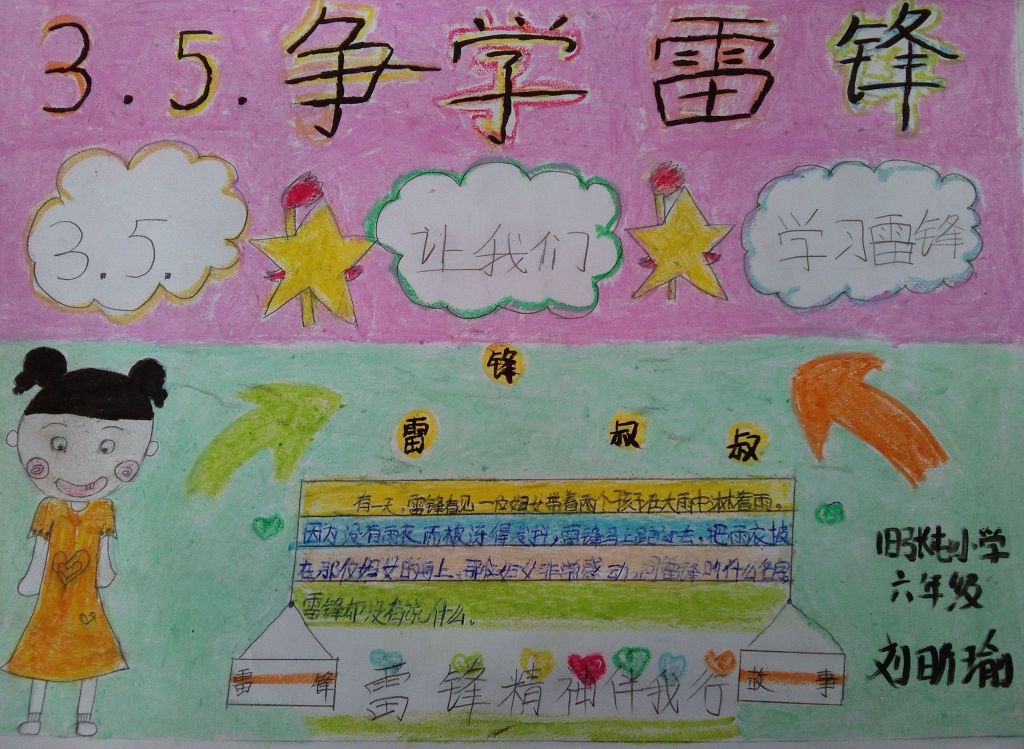 3.5.争学雷锋
3.5.
让我们
学习雷锋
雷锋叔叔
有一天,雷锋看见一位妇女带着两个孩子在大雨中淋着雨。
因为没有雨衣而被淋得发抖,雷锋马上跑过去,把雨衣披
在那位妇女的身上,那位妇女非常感动,问雷锋叫什么名字
雷锋却没有说什么。
雷锋
故事
雷锋精神伴我行
旧张屯小学
六年级
刘昕瑜